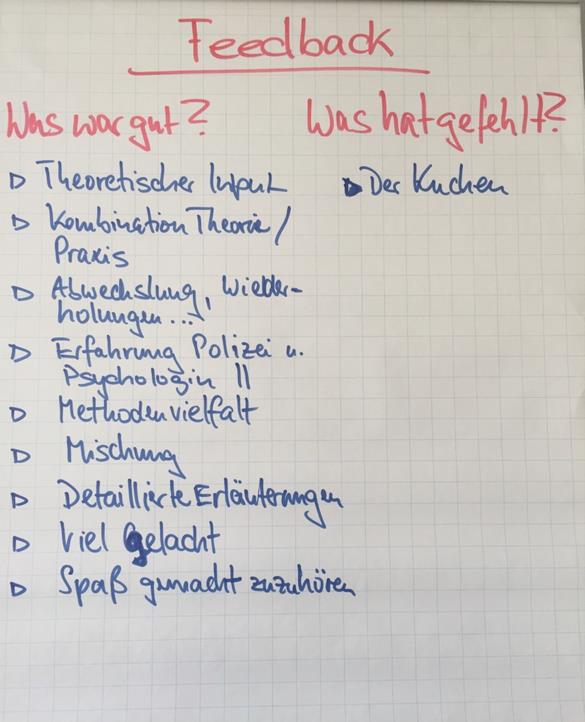 Feedback
Was war gut?
Was hat gefehlt?
Theoretischer Input
Kombination Theorie/
Praxis
Abwechslung, Wieder-
holungen...
Erfahrung Polizei u.
Psychologin ||
Methodenvielfalt
Mischung
Detaillierte Erläuterungen
Viel gelacht
Spaß gemacht zuzuhören
Der Kuchen